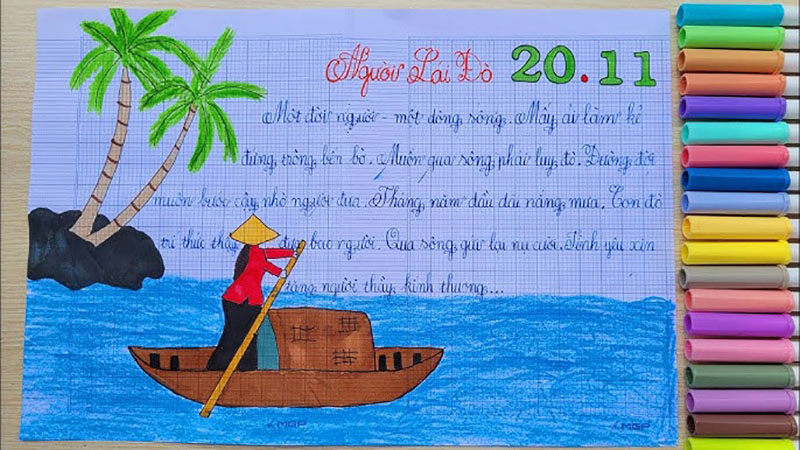 Người Lái Đò 20.11
Một đời người - một dòng sông. Mấy ai làm kẻ
đứng trông bến bờ. Muốn qua sông phải luỵ đò. Đường đời
muôn bước cậy nhờ người đưa. Tháng năm dầu dãi nắng mưa. Con đò
trí thức thầy đưa bao người. Qua sông gửi lại nụ cười. Tình yêu xin
tặng người thầy kính thương...
MGP MGP